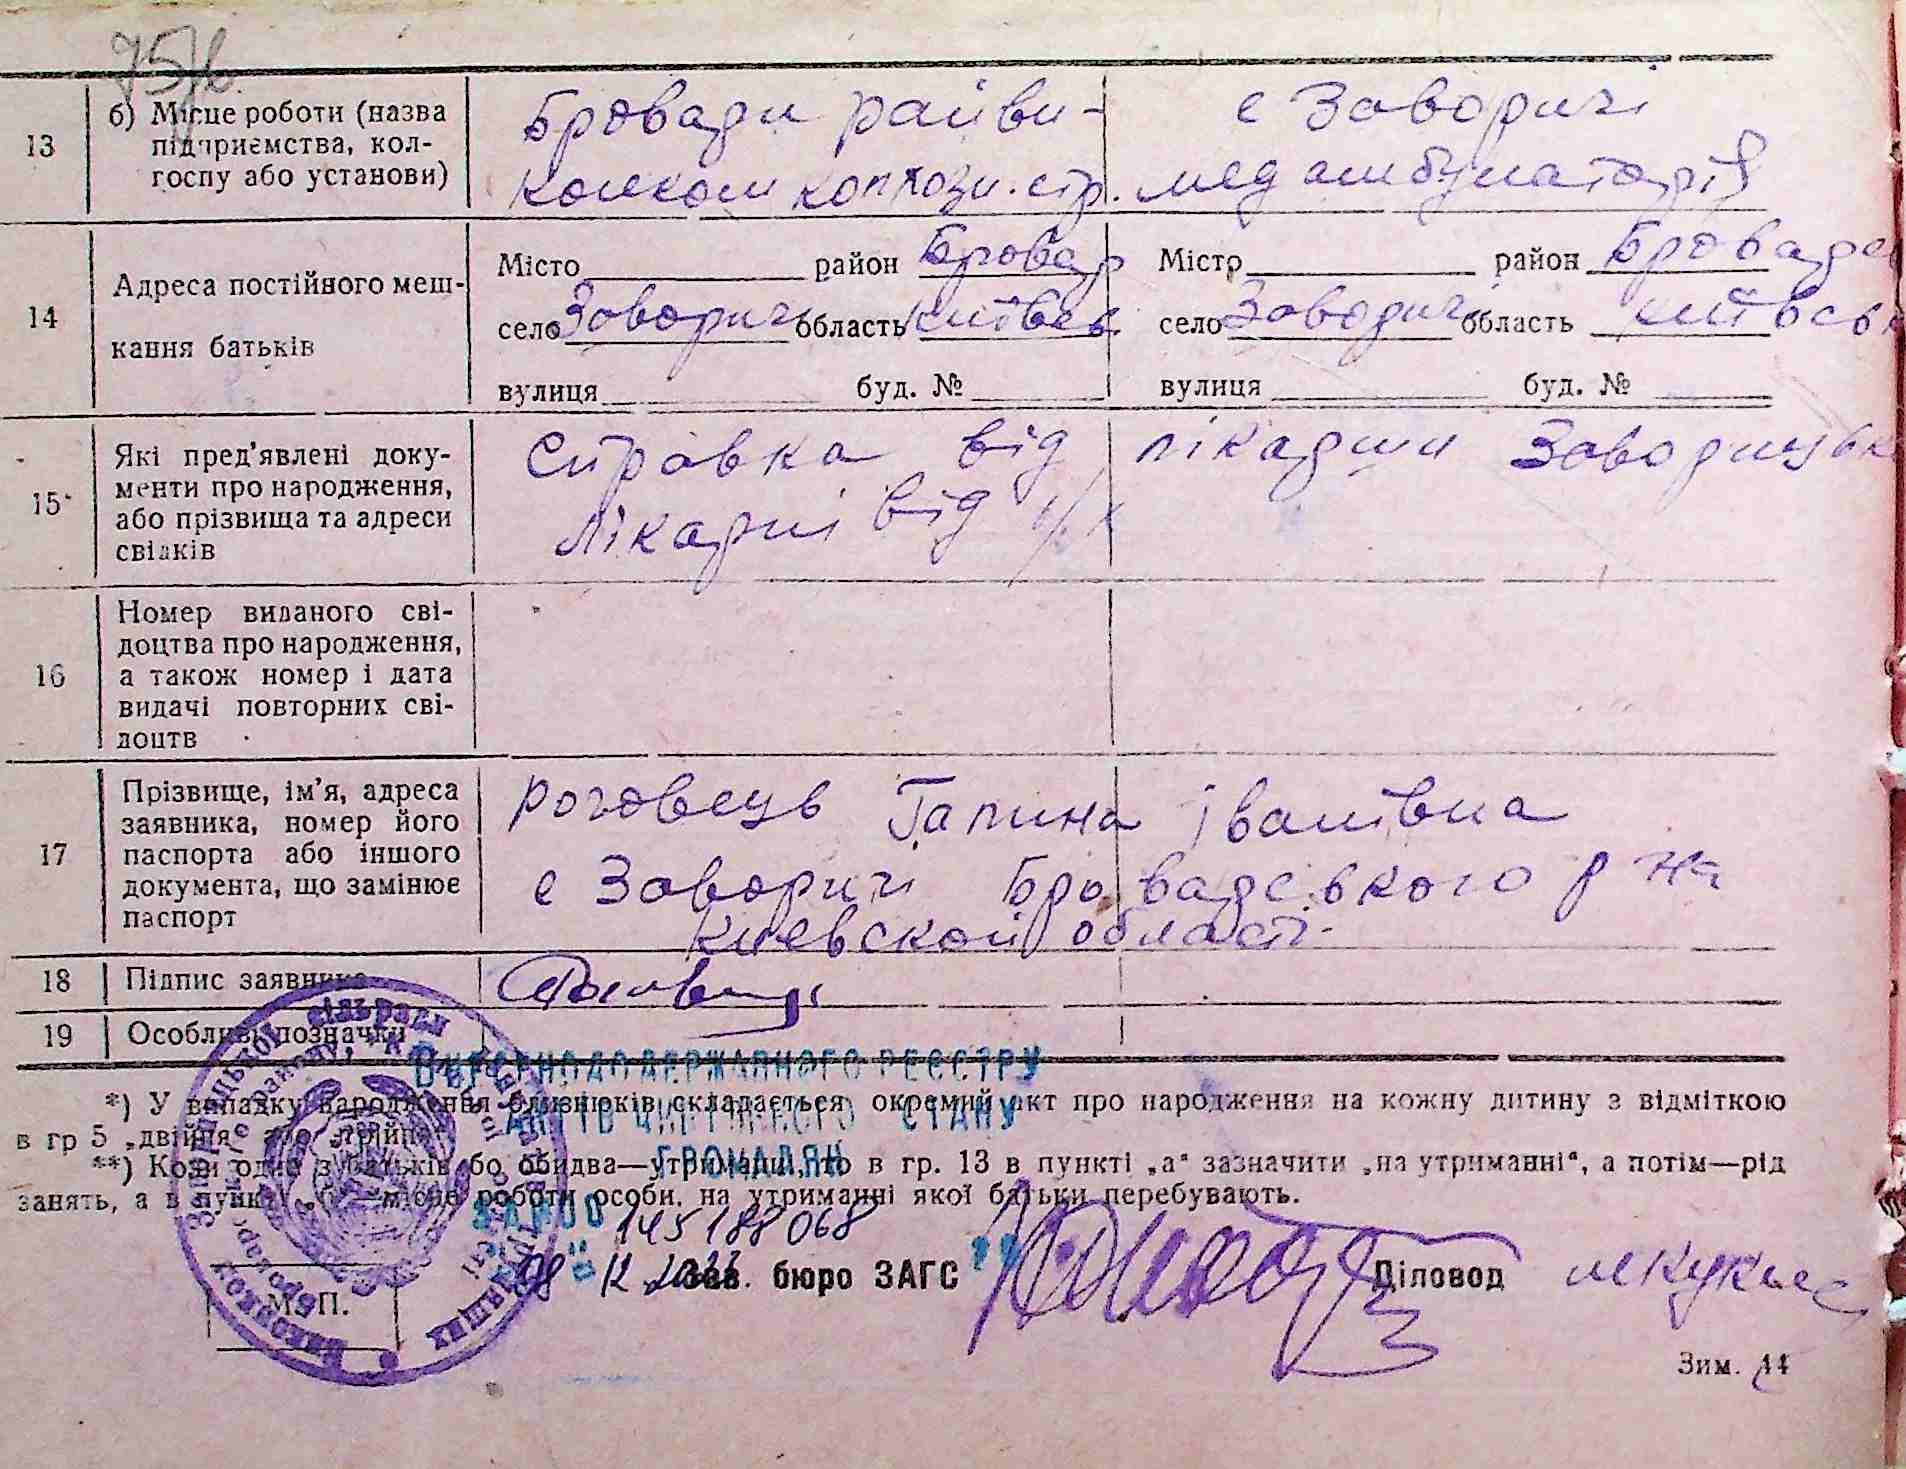 75/6
13 б) Місце роботи (назва підприємства, колгоспу або установи)
Бровари райви- с Заворичі
конком колгозп. стр. мед амбулаторія
14 Адреса постійного мешкання батьків
Місто район Бровар Місто район Броварсь
село Заворичі область київськ село Заворичі область київськ
вулиця буд. № вулиця буд. №
15 Які пред'явлені документи про народження, або прізвища та адреси свідків
Справка від лікарни Заворицьк
лікарні від
16 Номер виданого свідоцтва про народження, а також номер і дата видачі повторних свідоцтв
17 Прізвище, ім'я, адреса заявника, номер його паспорта або іншого документа, що замінює паспорт
Роговець Галина Іванівна
с Заворичі Броварського р на
Киевской області
18 Підпис заявника
19 Особливі позначки
ВНЕСЕНО ДО ДЕРЖАВНОГО РЕЄСТРУ
АКТІВ ЦИВІЛЬНОГО СТАНУ
ГРОМАДЯН
*) У випадку народження близнюків складається окремий акт про народження на кожну дитину з відміткою
в гр 5 „двійня" або „трійня"
**) Коли один з батьків або обидва—утриманці, то в гр. 13 в пункті „а" зазначити „на утриманні", а потім—рід
занять, а в пункті „б"—місце роботи особи, на утриманні якої батьки перебувають.
ЗА №00 145188068
08 12 Зав. бюро ЗАГС Діловод
М. П.
Зим. 44